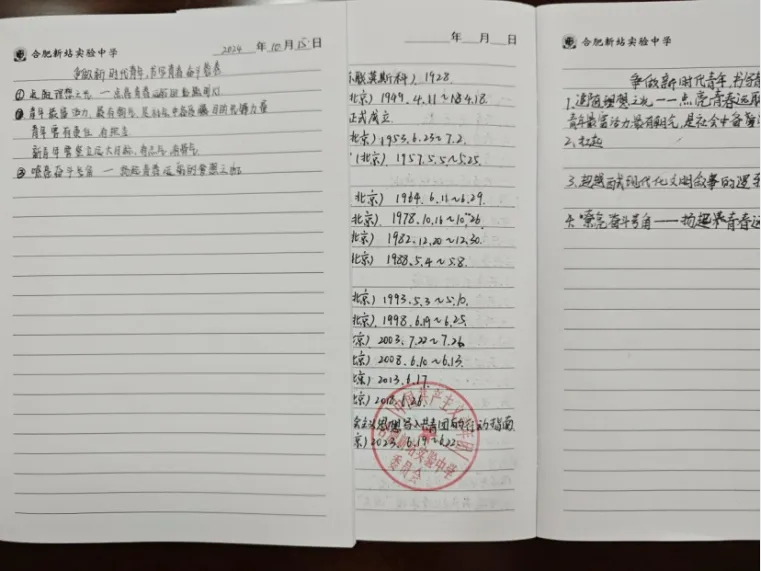 合肥新站实验中学
2024年10月15日
争做新时代青年,书写青春奋斗答卷
① 追随理想之光 一点亮青春远航
青年最富活力、最有朝气
青年要有责任 有担当
新青年要坚立远大目标、有志气、有骨气
③ 吹奏奋斗号角 一 扬起青春远航的
年 月 日
(莫斯科) 1928.
北京) 1949.4.11~4.18.
正式成立
北京) 1953.6.23~7.2.
(北京) 1957.5.5~5.25.
北京) 1964.6.11~6.29.
北京) 1978.10.16~10.26.
北京) 1982.12.20~12.30.
北京) 1988.5.4~5.8.
北京) 1993.5.3~5.10.
北京) 1998.6.19~6.25.
京) 2003.7.22~7.26.
北京) 2008.6.10~6.13.
北京) 2013.6.17.
北京) 2018.6.26.
会主义思想写入共青团的行动指南
京) 2023.6.19~6.22.
中国共产主义青年团
合肥新站实验中学
委员会
合肥新站实验中学
争做新时代青年,书写青
1.追随理想之光——点亮青春远航
青年最富活力最有朝气,是社会中备
2.扛起
3.超越西式现代化文明叙事的
4.吹亮奋斗号角——扬起青春远